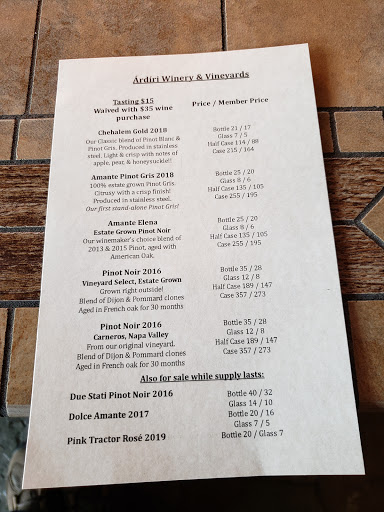 Árdíri Winery & Vineyards
Tasting $15 Price / Member Price
Waived with $35 wine
purchase
Chehalem Gold 2018
Our Classic blend of Pinot Blanc &
Pinot Gris, Produced in stainless
steel. Light & crisp with notes of
apple, pear, & honeysuckle!!
Bottle 21 / 17
Glass 7 / 5
Half Case 114 / 88
Case 215 / 164
Amante Pinot Gris 2018
100% estate grown Pinot Gris.
Citrusy with a crisp finish!
Produced in stainless steel.
Our first stand-alone Pinot Gris!
Bottle 25 / 20
Glass 8 / 6
Half Case 135 / 105
Case 255 / 195
Amante Elena
Estate Grown Pinot Noir
Our winemaker's choice blend of
2013 & 2015 Pinot, aged with
American Oak.
Bottle 25 / 20
Glass 8 / 6
Half Case 135 / 105
Case 255 / 195
Pinot Noir 2016
Vineyard Select, Estate Grown
Grown right outside!
Blend of Dijon & Pommard clones
Aged in French oak for 30 months
Bottle 35 / 28
Glass 12 / 8
Half Case 189 / 147
Case 357 / 273
Pinot Noir 2016
Carneros, Napa Valley
From our original vineyard.
Blend of Dijon & Pommard clones
Aged in French oak for 30 months
Bottle 35 / 28
Glass 12 / 8
Half Case 189 / 147
Case 357 / 273
Also for sale while supply lasts:
Due Stati Pinot Noir 2016
Bottle 40 / 32
Glass 14 / 10
Dolce Amante 2017
Bottle 20 / 16
Glass 7 / 5
Pink Tractor Rosé 2019
Bottle 20 / Glass 7